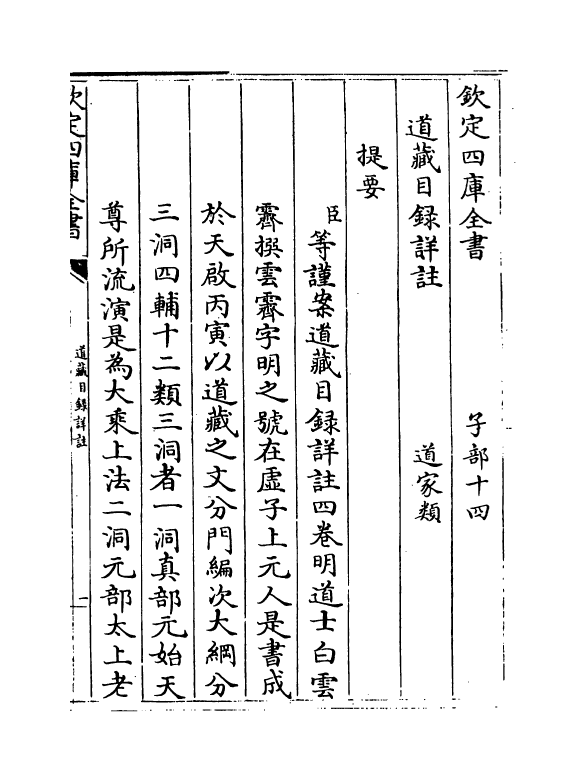 欽定四庫全書　子部十四
道藏目録詳註　道家類
提要
臣等謹案道藏目録詳註四卷明道士白雲
霽撰雲霽字明之號在虛子上元人是書成
於天啟丙寅以道藏之文分門編次大綱分
三洞四輔十二類三洞者一洞真部元始天
尊所流演是為大乘上法二洞元部太上老
欽定四庫全書
道藏目録詳註
一